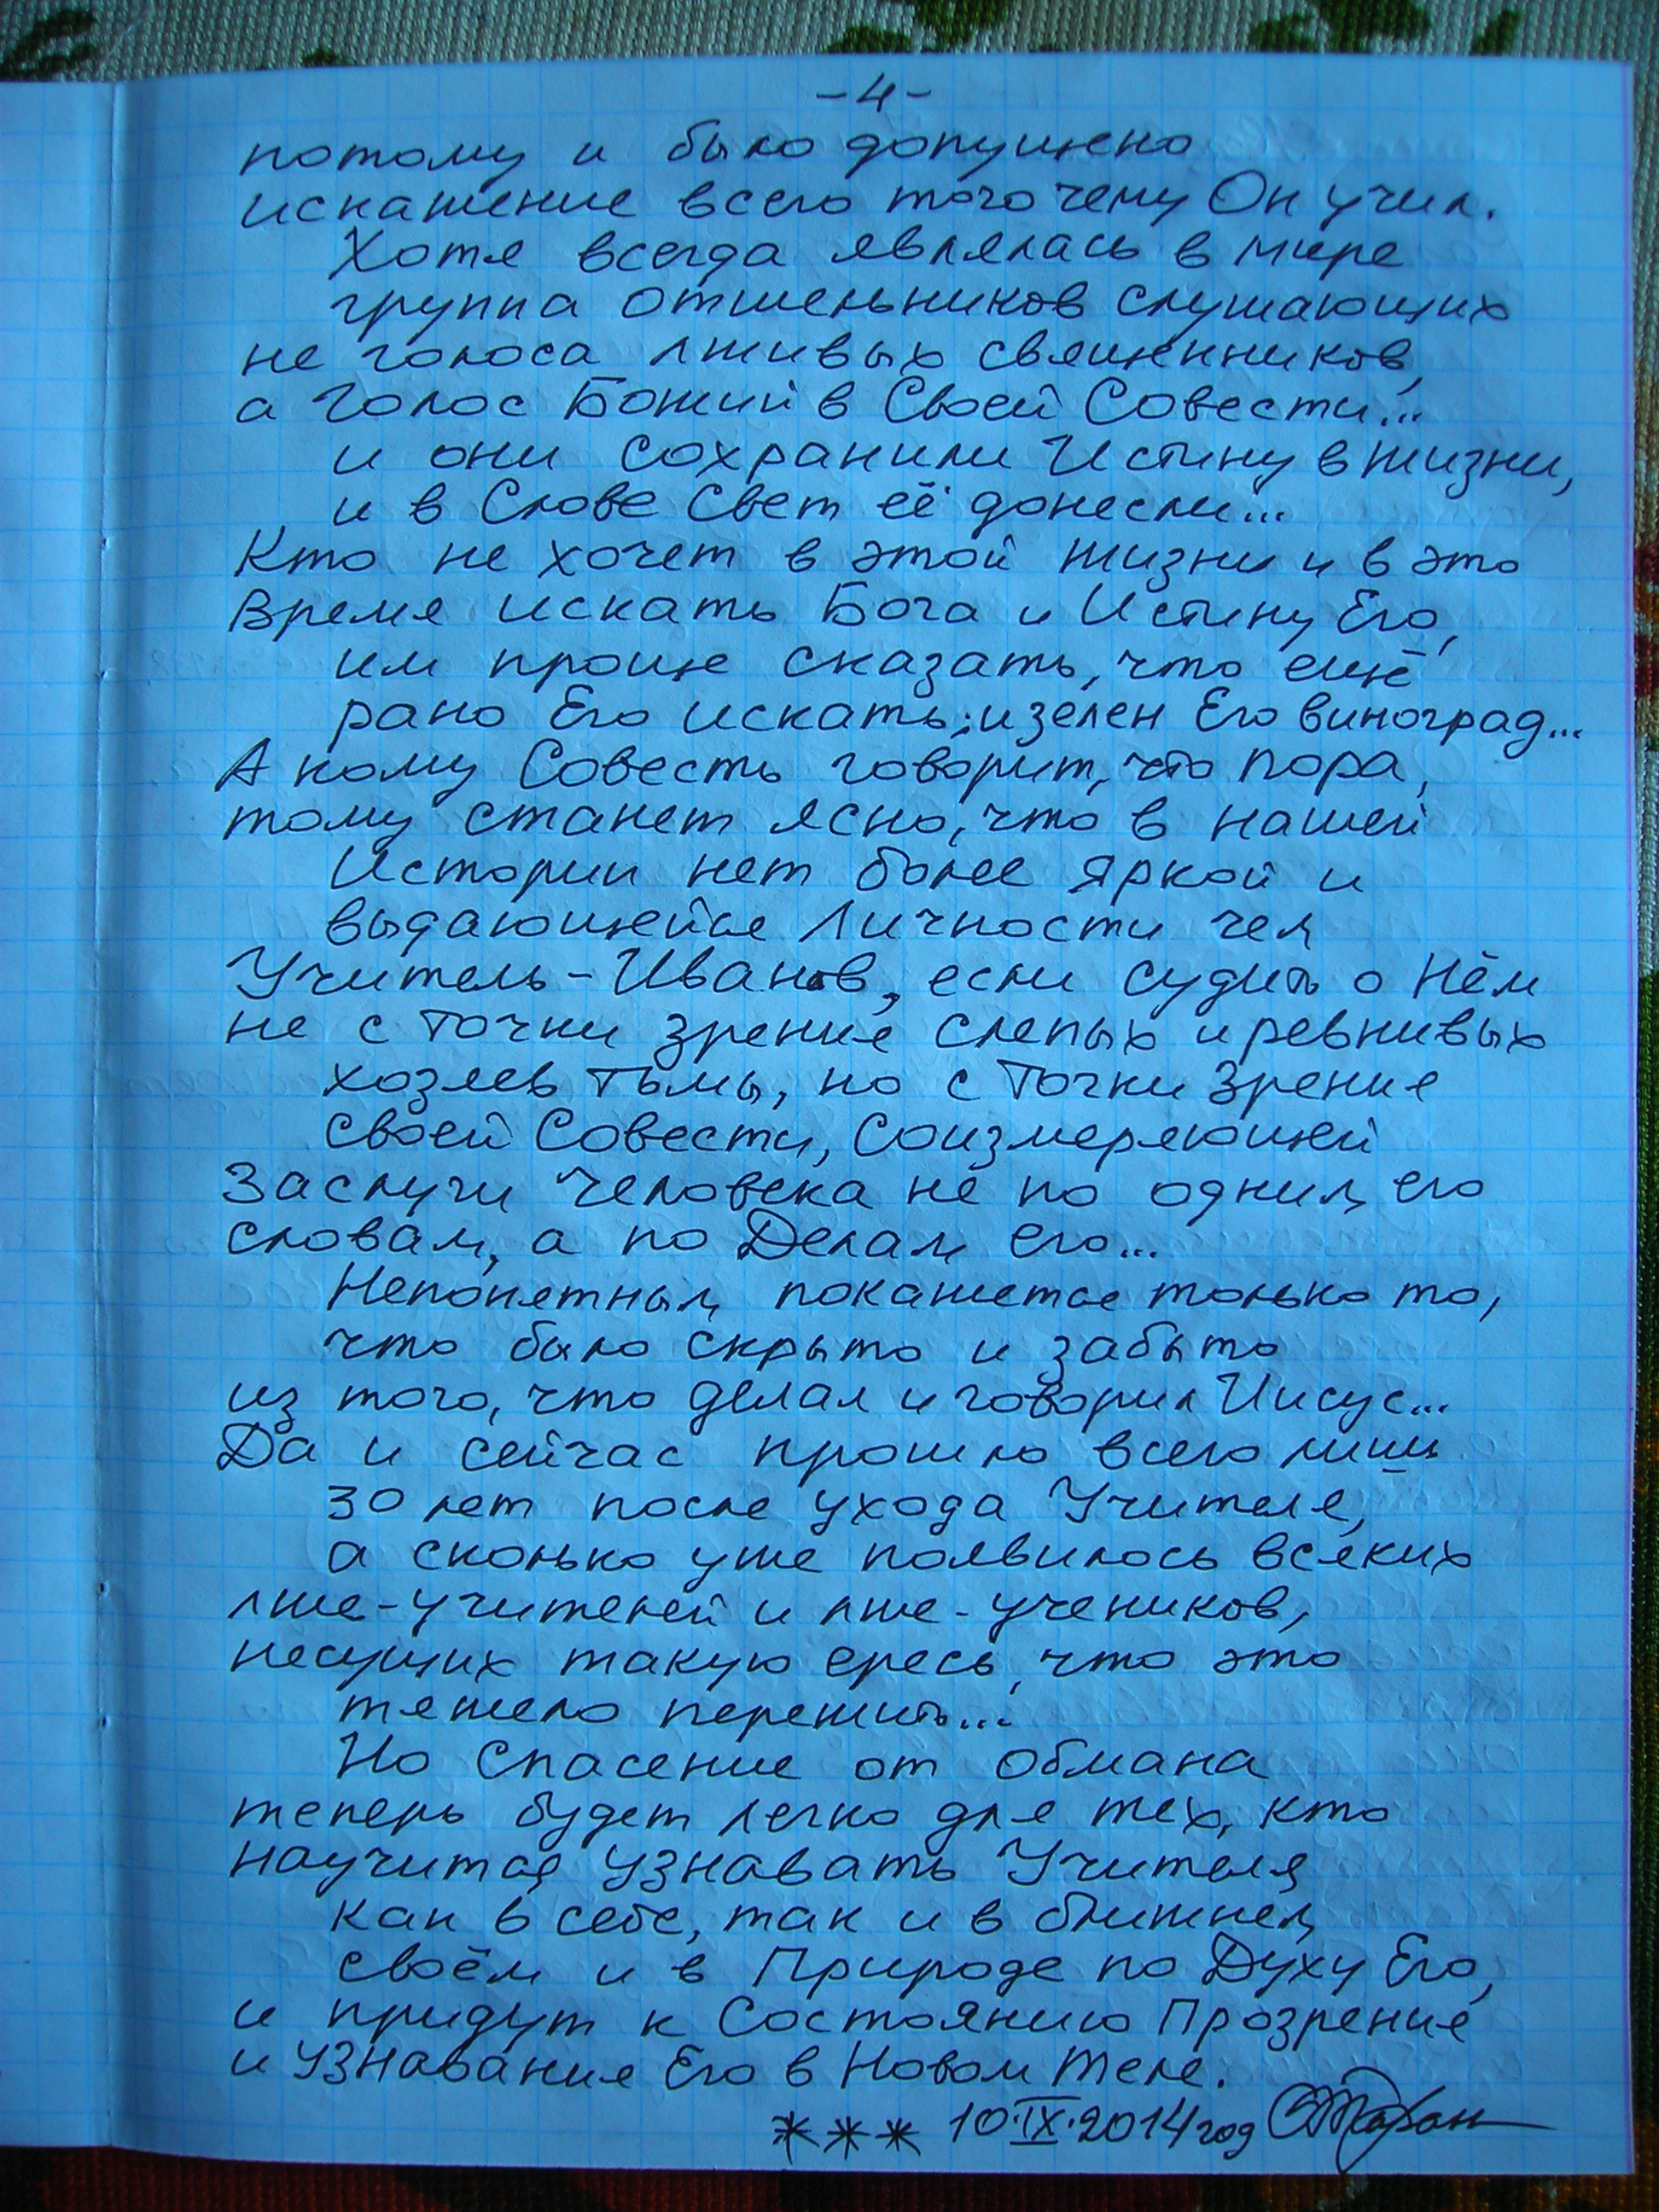 -4-
потому и было допущено
искажение всего того чему Он учил.
Хотя всегда являлась в мире
группа отшельников слушающих
не голоса лживых священников,
а Голос Божий в Своей Совести...
и они сохранили Истину в жизни,
и в Слове Свет её донесли...
Кто не хочет в этой жизни и в это
время искать Бога и Истину Его,
им проще сказать, что ещё
рано Его искать; и зелен Его виноград...
А кому Совесть говорит, что пора,
тому станет ясно, что в нашей
Истории нет более яркой и
выдающейся Личности чем
Учитель-Иванов, если судить о Нём
не с точки зрения слепых и ревнивых
хозяев тьмы, но с точки зрения
своей Совести, Соизмеряющей
Заслуги Человека не по одним его
словам, а по Делам его...
Непонятным покажется только то,
что было скрыто и забыто
из того, что делал и говорил Иисус...
Да и сейчас прошло всего лишь
30 лет после ухода Учителя,
а сколько уже появилось всяких
лже-учителей и лже-учеников,
несущих такую ересь, что это
тяжело пережить...
Но Спасение от Обмана
теперь будет легко для тех, кто
научится узнавать Учителя
как в себе, так и в ближнем
своём и в Природе по Духу Его,
и придут к Состоянию Прозрения
и узнавания Его в Новом Теле.
*** 10.IX.2014 год